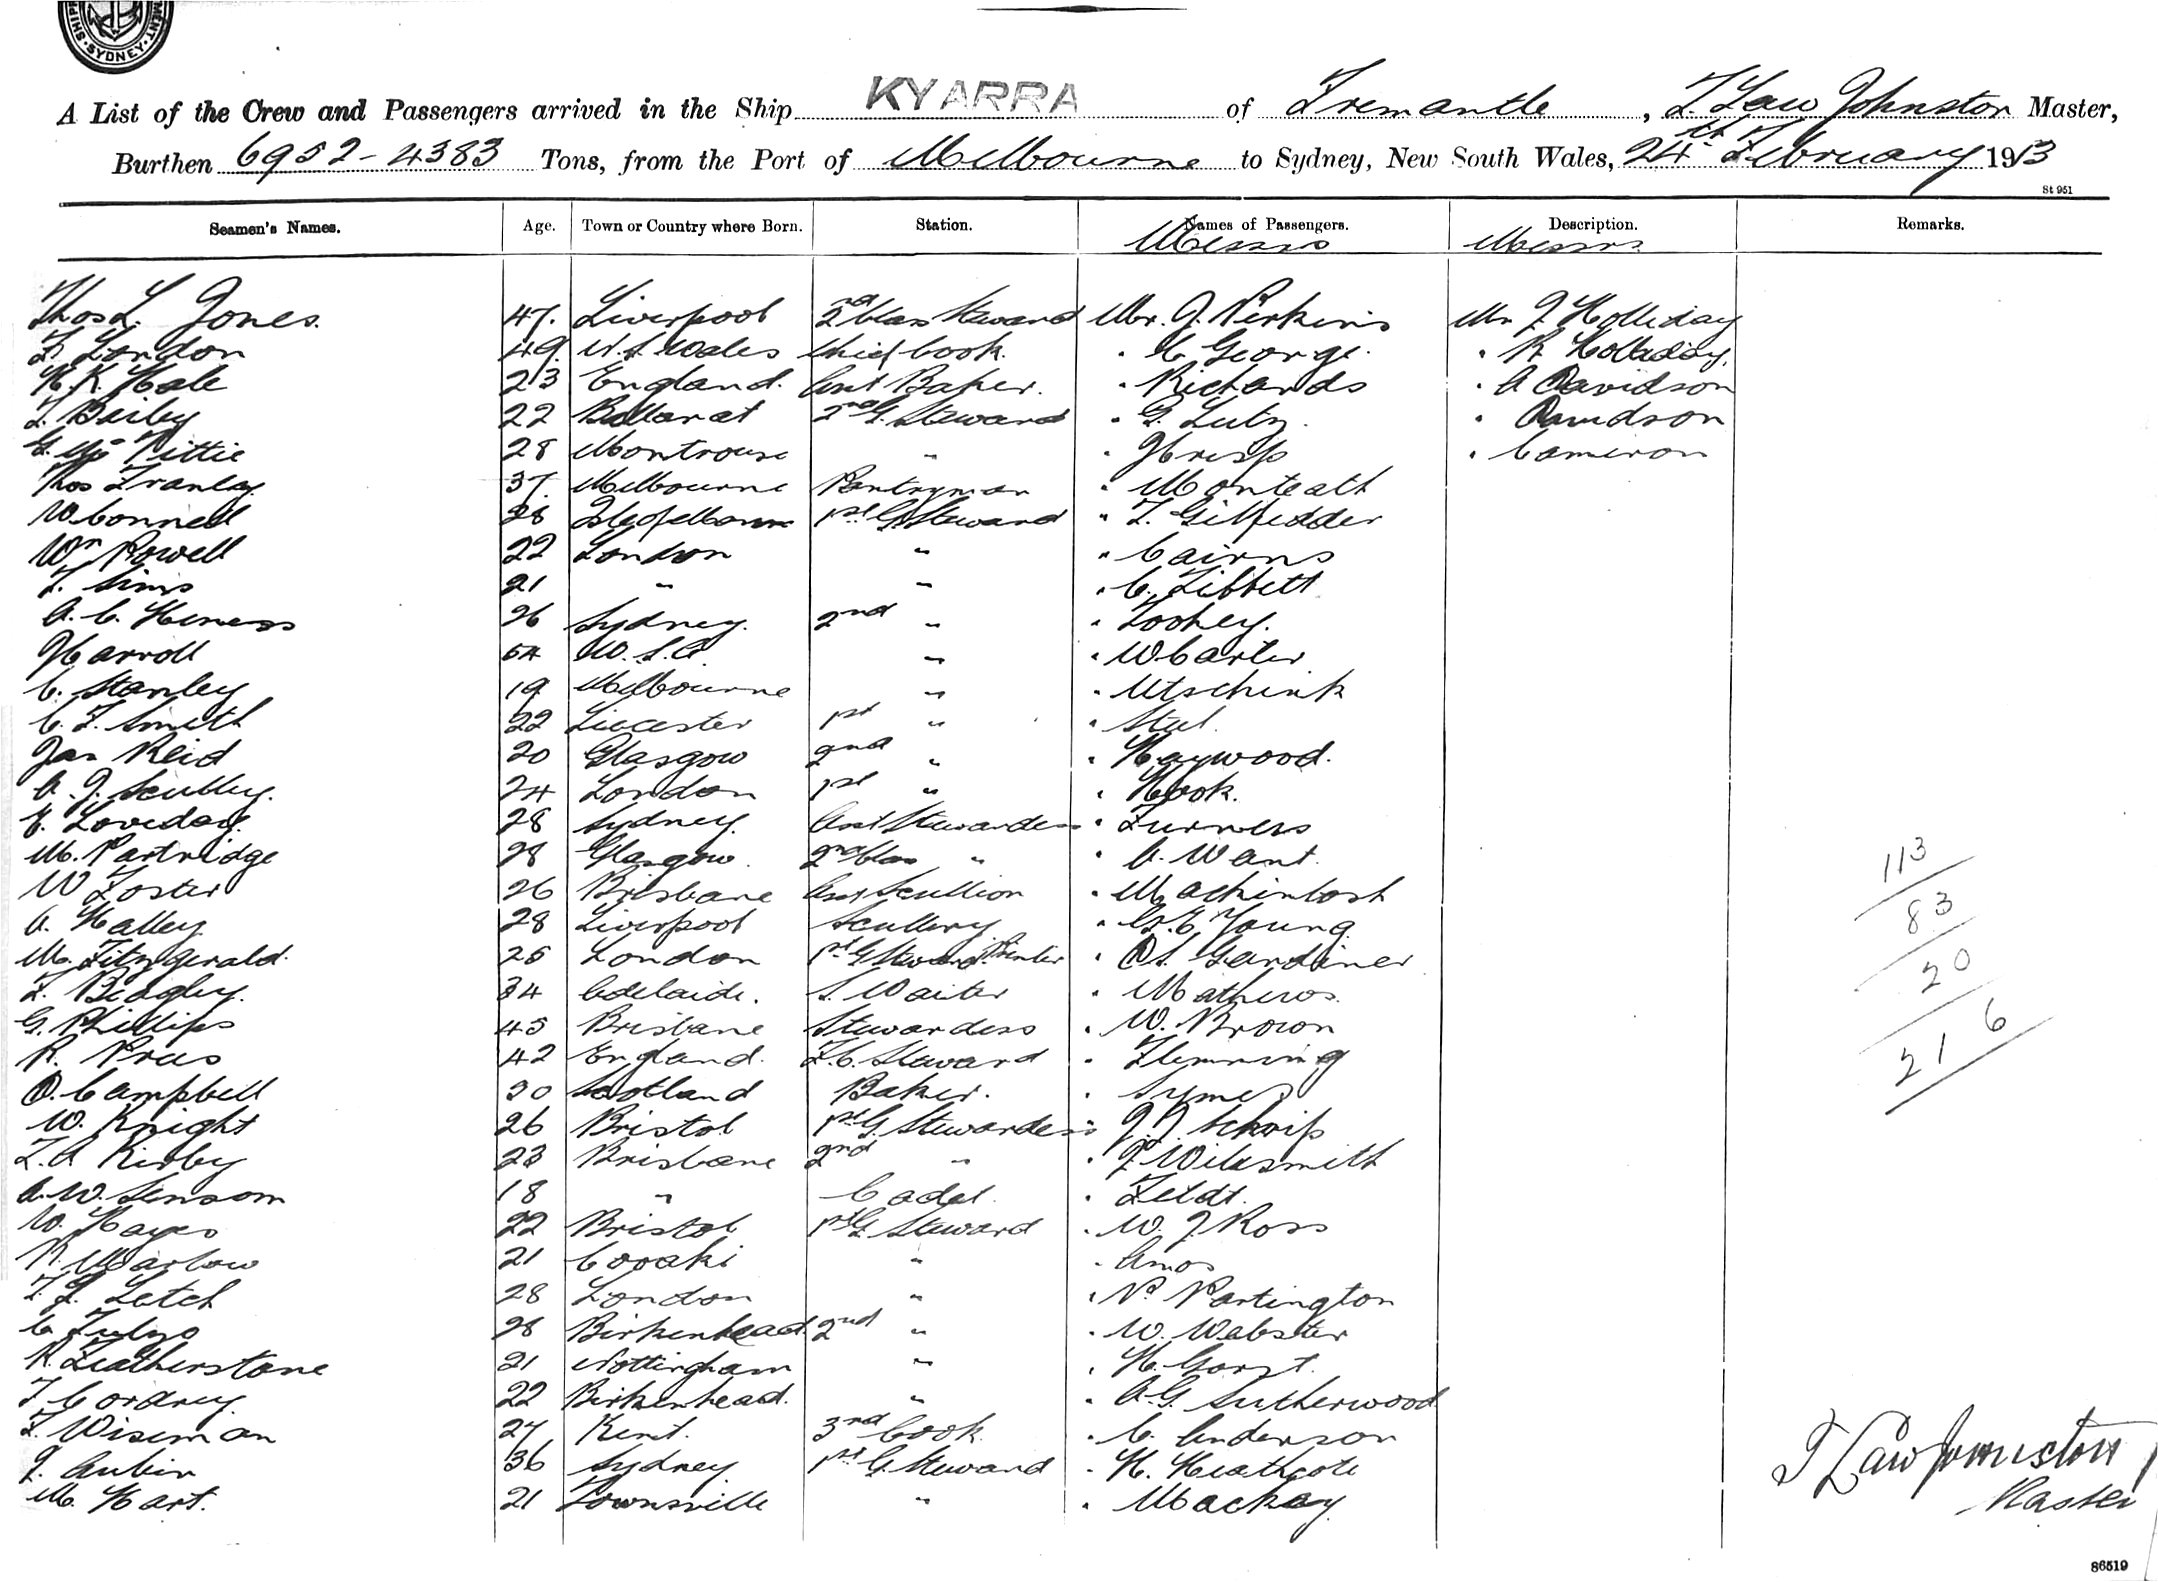 SHIPPING SYDNEY
A List of the Crew and Passengers arrived in the Ship KYARRA of Fremantle, T. Law Johnston Master,
Burthen 6952-4383 Tons, from the Port of Melbourne to Sydney, New South Wales, 24th February 1913
St 951
Seamen's Names. Age. Town or Country where Born. Station. Names of Passengers. Description. Remarks.
Messrs Messrs
Thos L. Jones. 47. Liverpool 2nd Class Steward Mr. J. Perkins Mr J Holliday
London 49. N.S. Wales Chief Cook. " C George. " R Holliday.
H. K. Hale 23 England. Asst Baker. " Richards " A Davidson
Bailey 22 Ballarat 2nd G. Steward " G. Lutz. " Davidson
28 Montrose " " " Cameron
Thos 37. Melbourne Pantryman " Monteath
W Connell 28 1st G. Steward " T. Gilfedder
Wm Powell 22 London " " Cairns
T. Sims 21 " " " C. Tibbett
A. C. 26 Sydney. 2nd " " Toohey.
54 W.S.A. " " W Carter
C. Stanley 19 Melbourne " "
C. F. Smith 22 Liecester 1st " "
Jas Reid 20 Glasgow 2nd " " Haywood.
A. J. Scully. 24 London 1st " " Hook.
E. Loveday. 28 Sydney. Asst Stewardess "
M. Partridge 28 Glasgow. 2nd Class " " A. Want.
W Foster 26 Brisbane Asst Scullion " Mackintosh
A. Halley. 28 Liverpool Scullery " Young.
M. Fitzgerald. 25 London 1st G Steward. Printer " Gardiner
34 Adelaide. S. Waiter " Mathews.
G. Phillips 45 Brisbane Stewardess " W. Brown
R. Prees 42 England. F.C. Steward " Flemming
D. Campbell 30 Scotland Baker. " Symes
W. Knight 26 Bristol 1st G. Stewardess
F. A Kirby 23 Brisbane 2nd " " J Wilksmith
A. W. Sensom 18 " Cadet. " Feldt.
W. Hayes 22 Bristol 1st G. Steward " W. J Ross
R. Marlow 21 Coraki " " Amos
Letch 28 London " " P. Partington
C 28 Birkenhead 2nd " " W. Webster
R. Featherstone 21 Nottingham " "
Cordrey. 22 Birkenhead. " " A. G. Sutherwood
Wiseman 27 Kent. 3rd Cook. " C. Anderson
J. Aubin 36 Sydney. 1st G. Steward " H. Heathcote
M. Hart. 21 Townsville " " Mackay
113
83
20
216
T Law Johnston
Master
86519